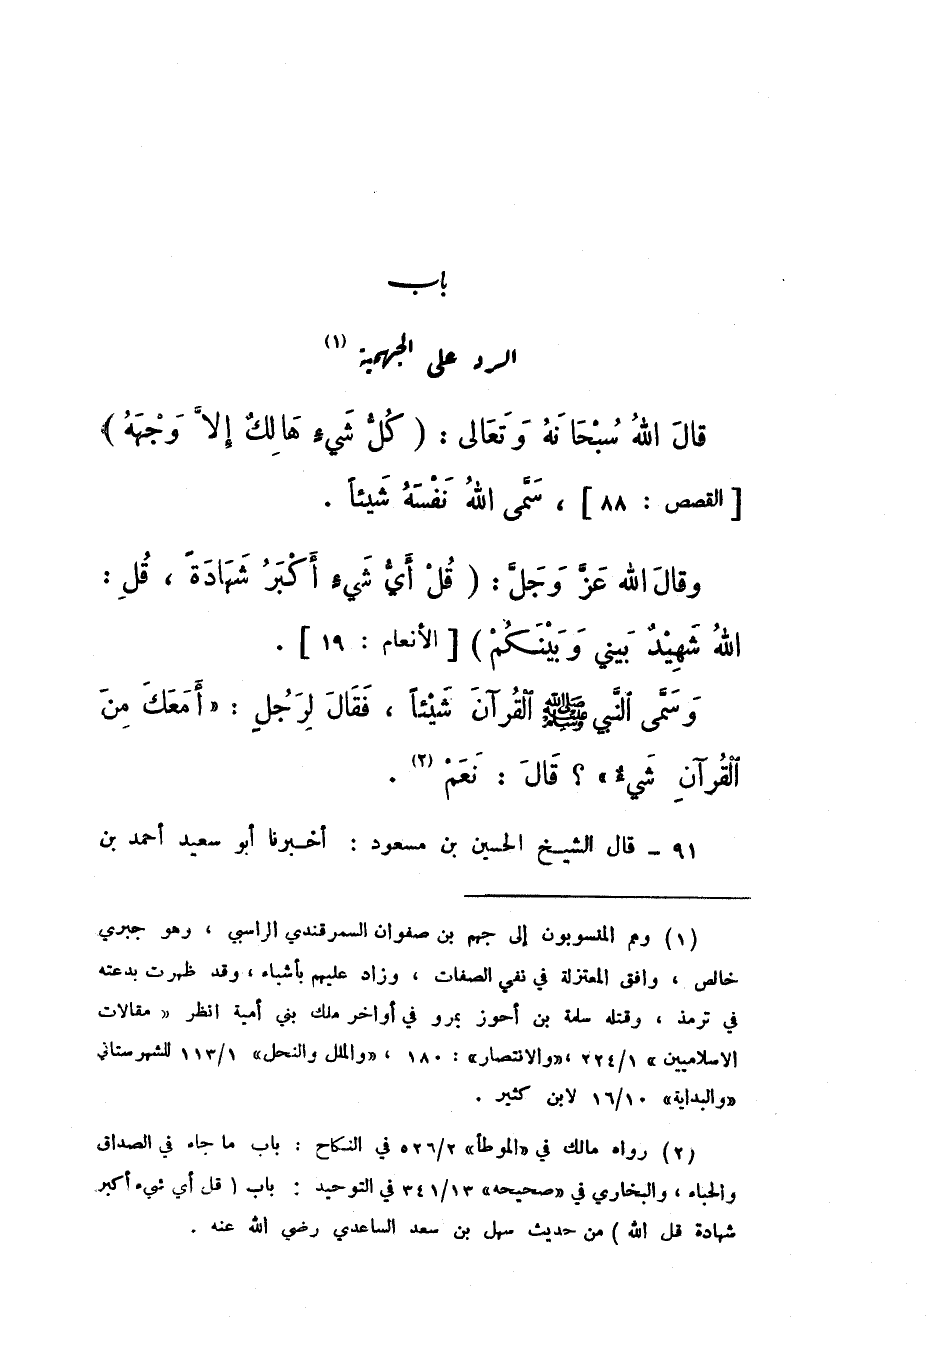 باب
الرد على الجهمية (١)
قالَ اللهُ سُبْحَانَهُ وَتَعَالى : ( كُلُّ شَيءٍ هَالِكٌ إِلاَّ وَجْهَهُ )
[ القصص : ٨٨ ] ، سَمَّى اللهُ نَفْسَهُ شَيئاً .
وقالَ الله عَزَّ وَجَلَّ : ( قُلْ أَيُّ شَيءٍ أَكْبَرُ شَهَادَةً ، قُلِ :
اللهُ شَهِيْدٌ بَيني وَبَيْنَكُمْ ) [ الأنعام : ١٩ ] .
وَسَمَّى ٱلنَّبي ﷺ ٱلْقُرآنَ شَيْئاً ، فَقَالَ لِرَجُلٍ : « أَمَعَكَ مِنَ
ٱلْقُرآنِ شَيءٌ » ؟ قَالَ : نَعَمْ (٢) .
٩١ – قال الشيخ الحسين بن مسعود : أخبرنا أبو سعيد أحمد بن
(١) وهم المنسوبون إلى جهم بن صفوان السمرقندي الراسبي ، وهو جبري
خالص ، وافق المعتزلة في نفي الصفات ، وزاد عليهم بأشياء ، وقد ظهرت بدعته
في ترمذ ، وقتله سلمة بن أحوز بمرو في أواخر ملك بني أمية انظر « مقالات
الاسلاميين » ٢٢٤/١ ،«والانتصار» : ١٨٠ ، «والملل والنحل» ١١٣/١ للشهرستاني
«والبداية» ١٦/١٠ لابن كثير .
(٢) رواه مالك في «الموطأ» ٥٢٦/٢ في النكاح : باب ما جاء في الصداق
والحباء ، والبخاري في «صحيحه» ٣٤١/١٣ في التوحيد : باب ( قل أي شيء أكبر
شهادة قل الله ) من حديث سهل بن سعد الساعدي رضي الله عنه .